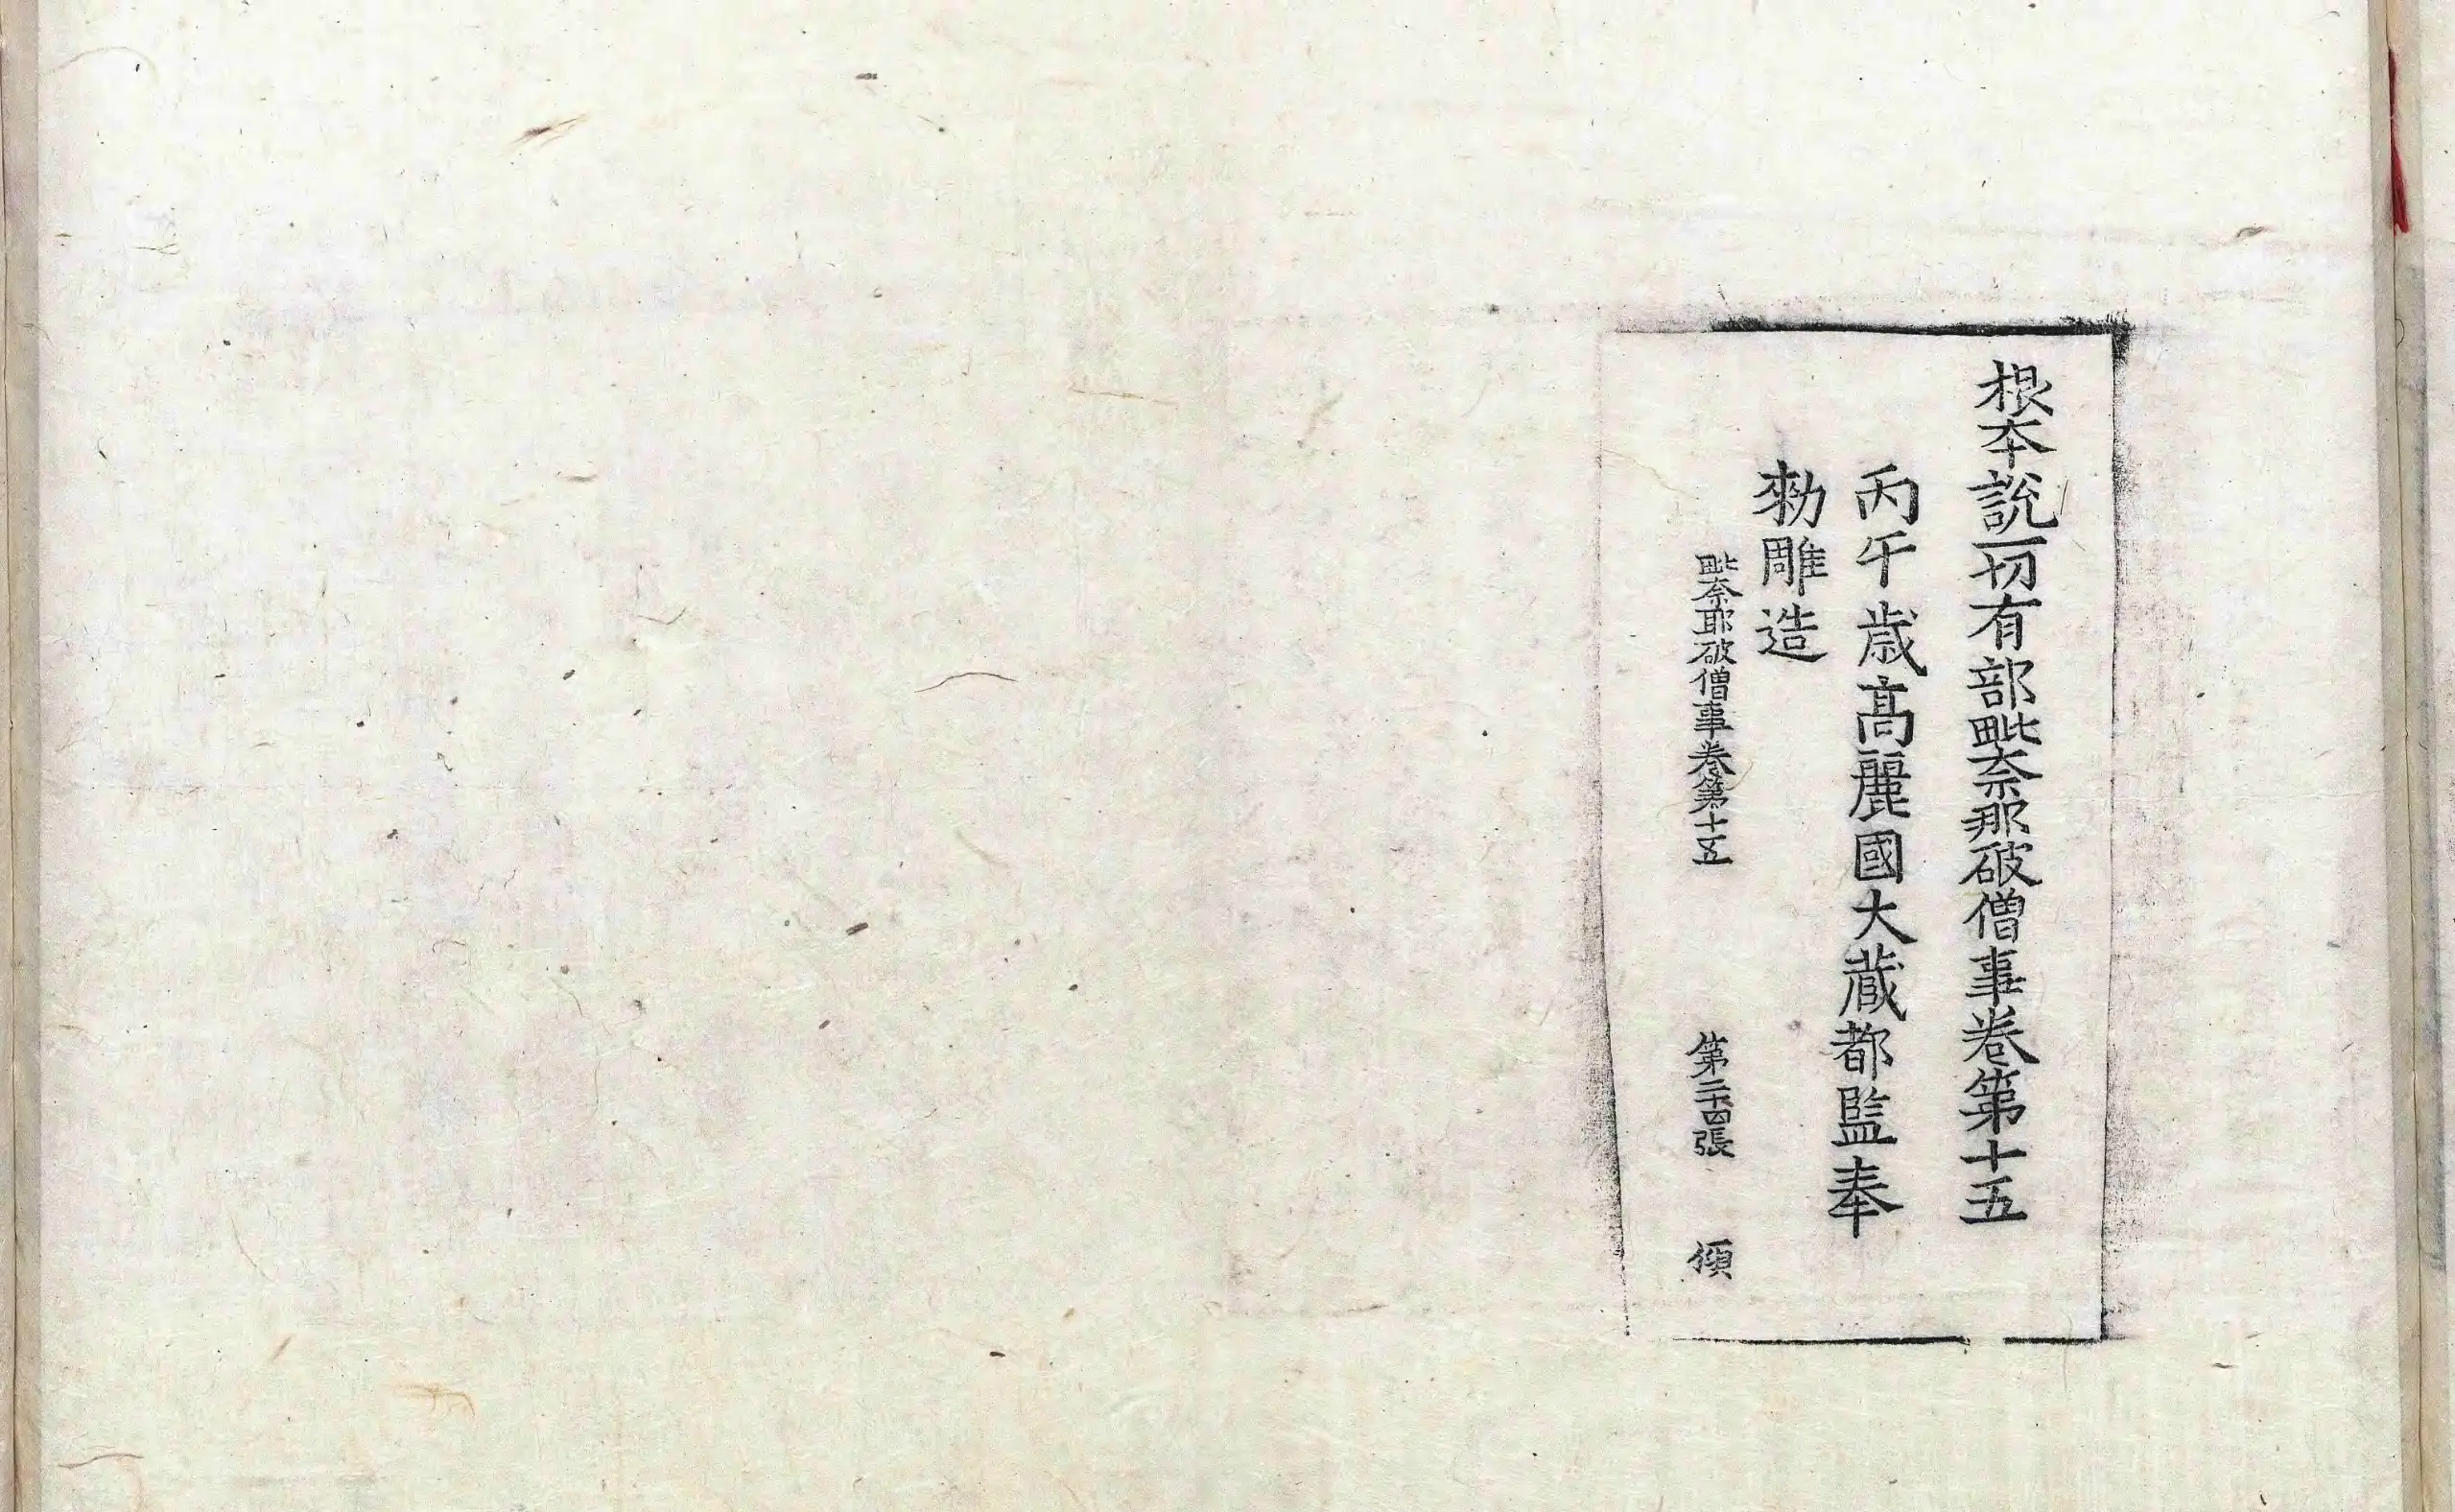 根本說一切有部毗奈那破僧事卷第十五
丙午歲高麗國大藏都監奉
勑雕造
毗奈耶破僧事卷第十五 第二十四張 傾